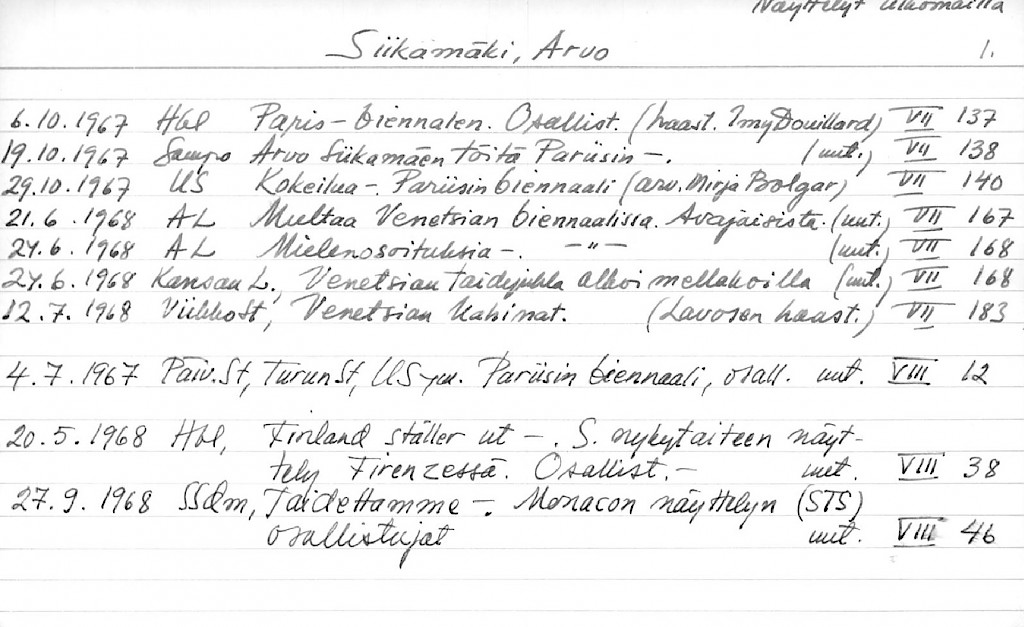 Näyttelyt ulkomailla
Siikamäki, Arvo 1.
6.10.1967 Hbl Paris-biennalen. Osallist. (haast. Imy Douillard) VII 137
19.10.1967 Sampo Arvo Siikamäen töitä Pariisin -. (uut.) VII 138
29.10.1967 US Kokeilua-. Pariisin biennaali (arv. Mirja Bolgar) VII 140
21.6.1968 AL Multaa Venetsian biennaalissa. Avajaisista. (uut.) VII 167
24.6.1968 AL Mielenosoituksia -. -"- (uut.) VII 168
24.6.1968 Kansan L., Venetsian taidejuhla alkoi mellakoilla (uut.) VII 168
12.7.1968 ViikkoSt, Venetsian kahinat. (Lavosen haast.) VII 183
4.7.1967 Päiv.St, TurunSt, US ym. Pariisin biennaali, osall. uut. VIII 12
20.5.1968 Hbl, Finland ställer ut -. S. nykytaiteen näyt-
tely Firenzessä. Osallist. - uut. VIII 38
27.9.1968 SSdm, Taidettamme -. Monacon näyttelyn (STS)
osallistujat uut. VIII 46